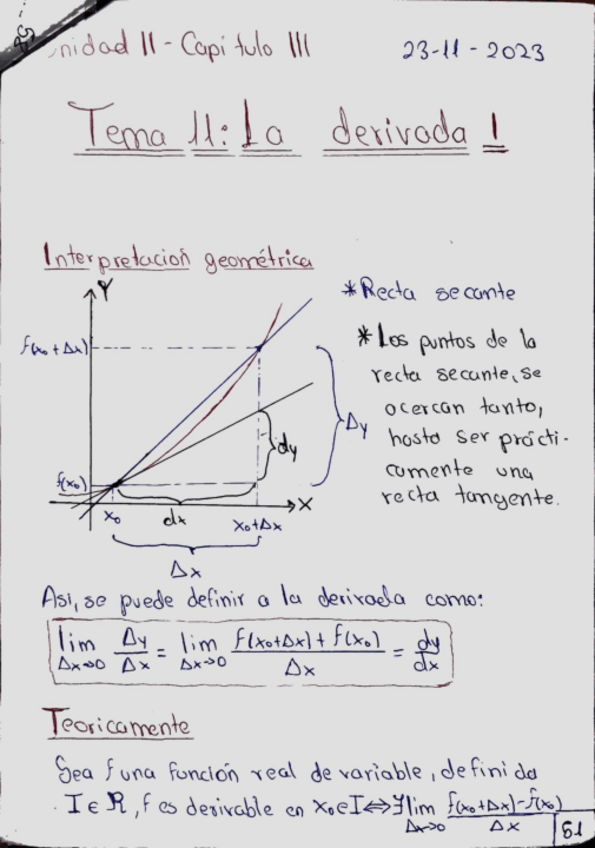 Unidad II - Capitulo III
23-11-2023
Tema 11: La derivada I
Interpretación geométrica
Y
f(x₀+Δx)
f(x₀)
x₀
dx
x₀+Δx
X
Δx
dy
Δy
*Recta secante
*Los puntos de la
recta secante, se
acercan tanto,
hasta ser prácti-
camente una
recta tangente.
Asi, se puede definir a la derivada como:
lim Δx→0 Δy/Δx = lim Δx→0 (f(x₀+Δx)+f(x₀))/Δx = dy/dx
Teoricamente
Sea f una función real de variable, definida
I ∈ R, f es derivable en x₀∈I ⇔ ∃ lim Δx→0 (f(x₀+Δx)-f(x₀))/Δx
51